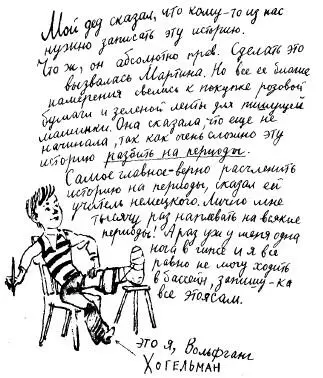 Мой дед сказал, что кому-то из нас
нужно записать эту историю.
Что ж, он абсолютно прав. Сделать это
вызвалась Мартина. Но все ее благие
намерения свелись к покупке розовой
бумаги и зеленой ленты для пишущей
машинки. Она сказала что еще не
начинала, так как очень сложно эту
историю разбить на периоды.
Самое главное-верно расчленить
историю на периоды, сказал ей
учитель немецкого. Лично мне
тысячу раз наплевать на всякие
периоды! А раз уж у меня одна
нога в гипсе и я все
равно не могу ходить
в бассейн, запишу-ка
все это я сам.
это я, Вольфганг
Хогельман